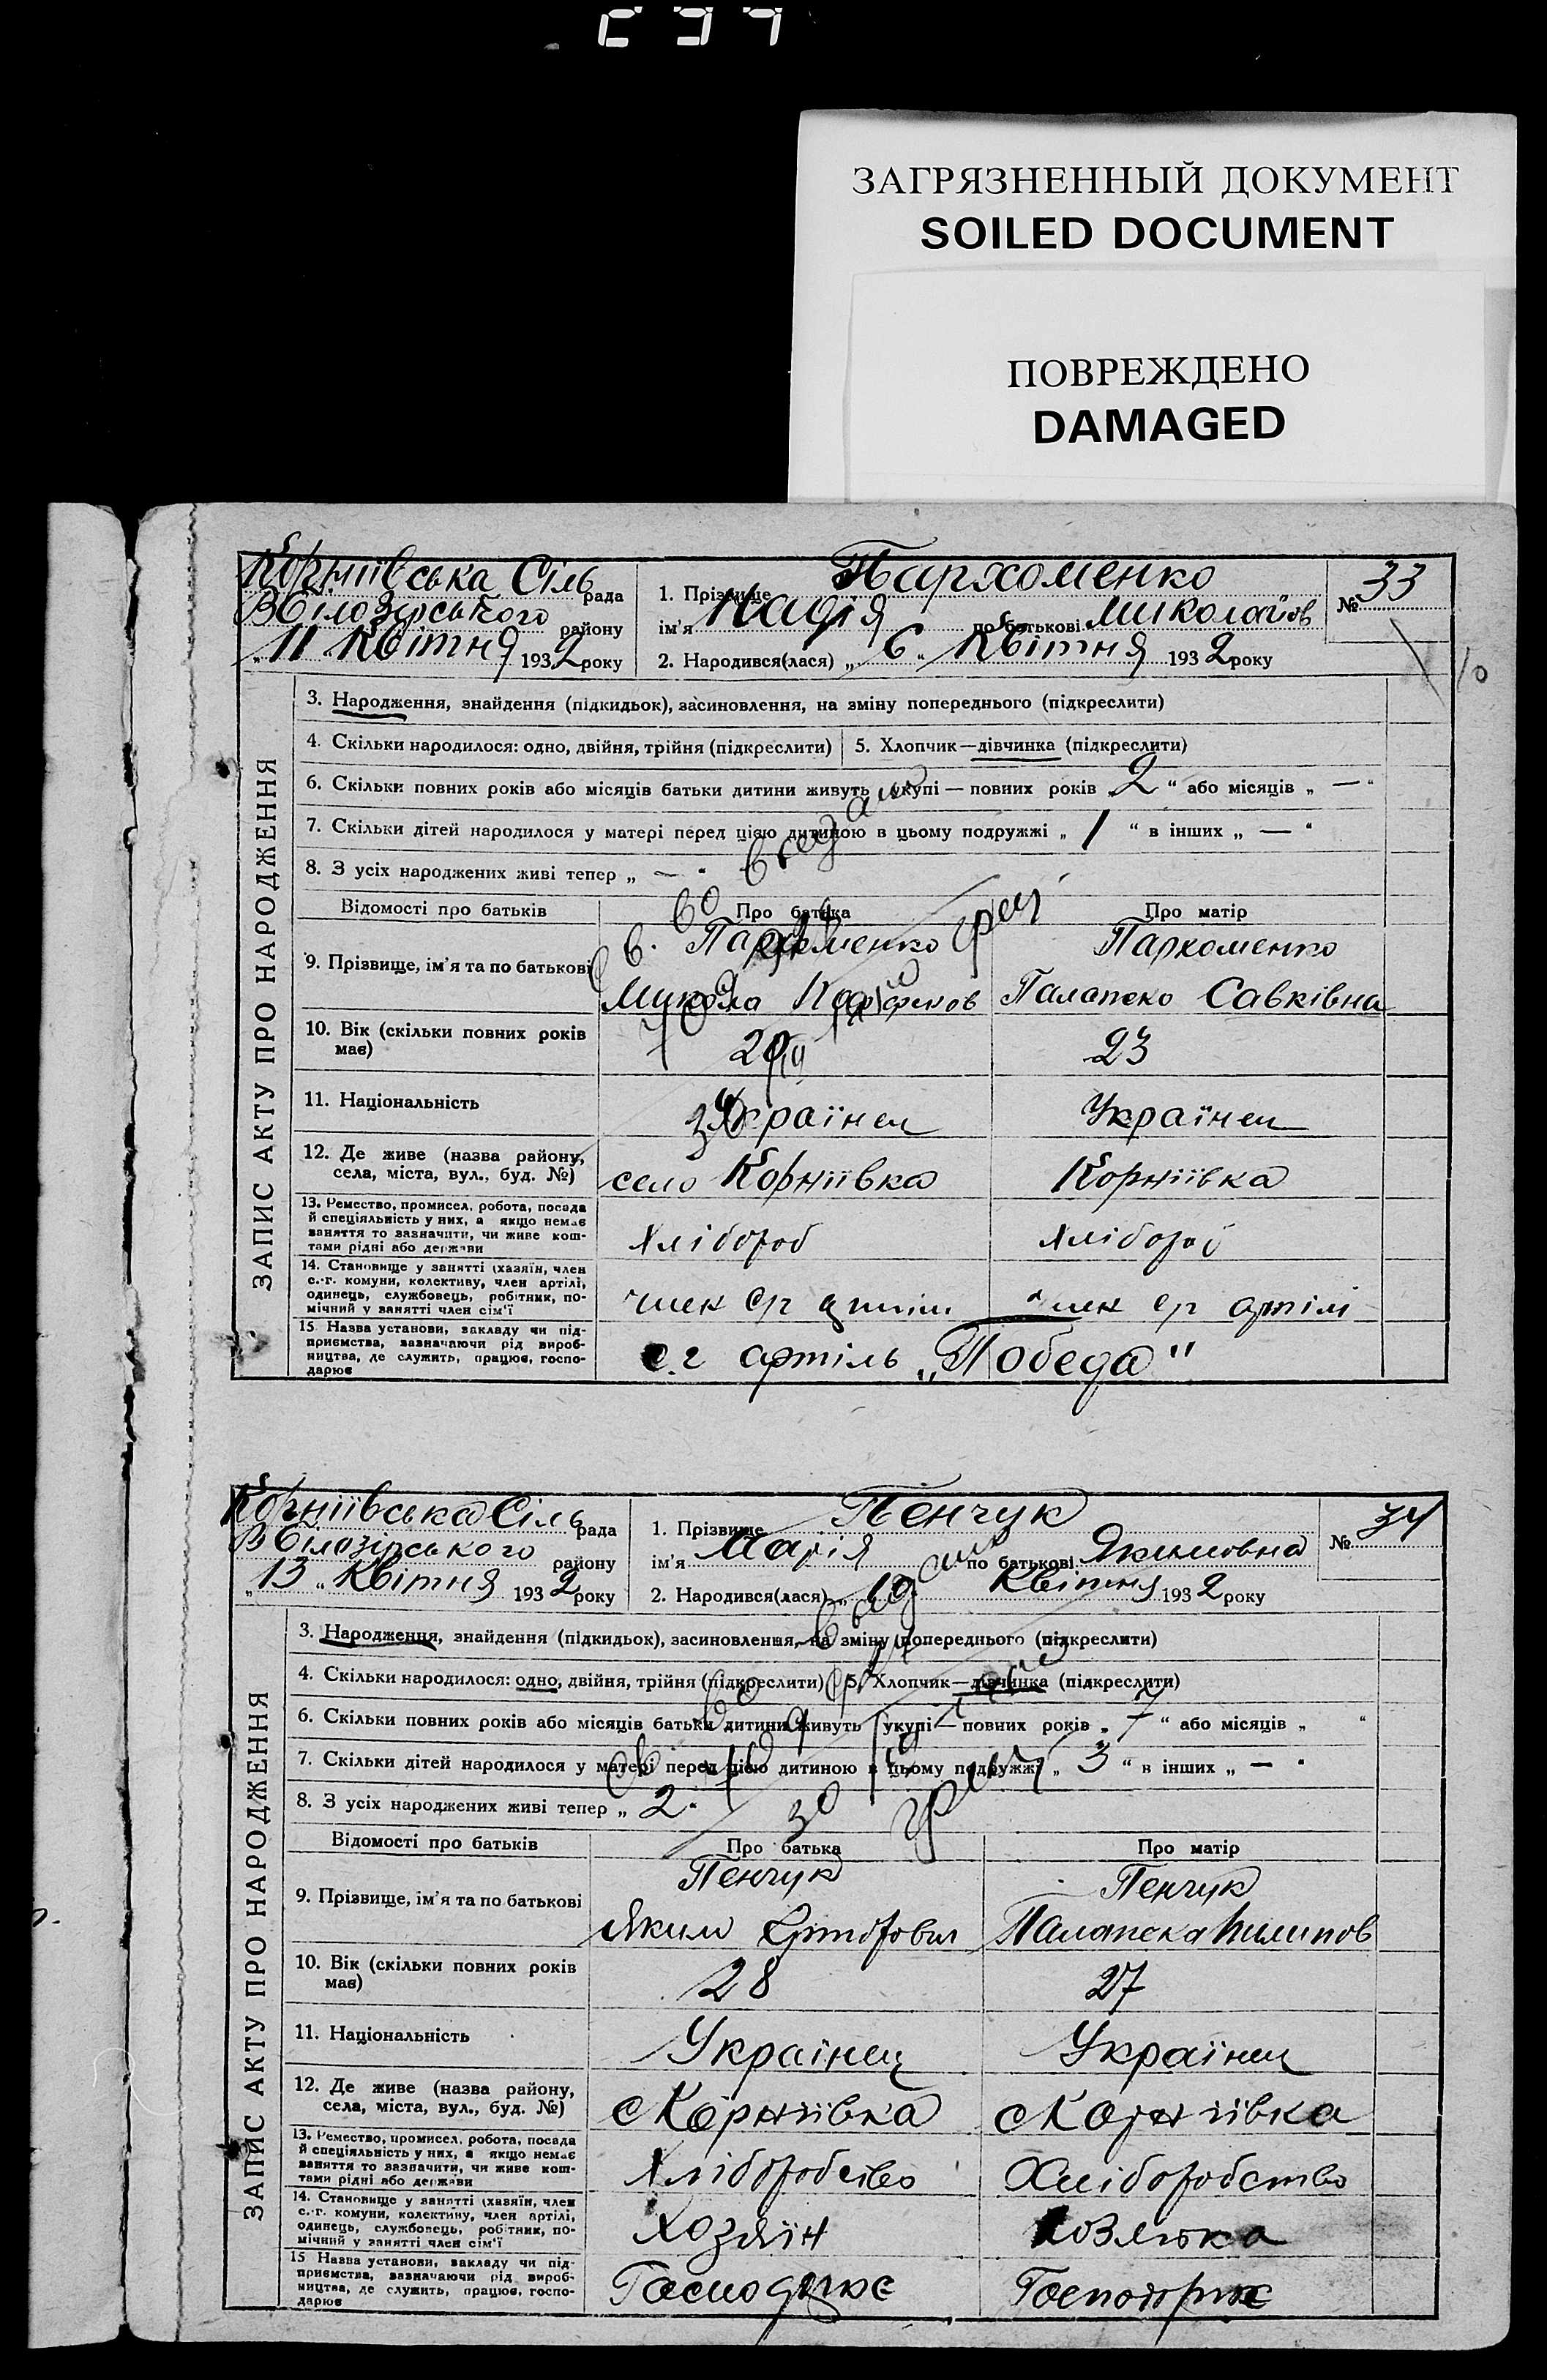 ЗАГРЯЗНЕННЫЙ ДОКУМЕНТ
SOILED DOCUMENT
ПОВРЕЖДЕНО
DAMAGED
ЗАПИС АКТУ ПРО НАРОДЖЕННЯ
Корниівська Сіль рада
Вбілозірського району
„11" Квітня 1932 року
1. Прізвище Пархоменко
ім'я Надія по батькові Миколайов
2. Народився(лася) „6" Квітня 1932 року
№ 33
10
3. Народження, знайдення (підкидьок), засиновлення, на зміну попереднього (підкреслити)
4. Скільки народилося: одно, двійня, трійня (підкреслити) 5. Хлопчик—дівчинка (підкреслити)
6. Скільки повних років або місяців батьки дитини живуть укупі — повних років „2" або місяців „—"
7. Скільки дітей народилося у матері перед цією дитиною в цьому подружжі „1" в інших „—"
8. З усіх народжених живі тепер „—"
Відомості про батьків Про батька Про матір
9. Прізвище, ім'я та по батькові Пархоменко Пархоменко
Микола Палапеко Савківна
10. Вік (скільки повних років має) 23
11. Національність Українец Українец
12. Де живе (назва району, села, міста, вул., буд. №) село Корниівка Корниівка
13. Ремество, промисел, робота, посада й спеціяльність у них, а якщо немає заняття то зазначити, чи живе коштами рідні або держави Хлібороб Хлібороб
14. Становище у занятті (хазяїн, член с.-г. комуни, колективу, член артілі, одинець, службовець, робітник, помічний у занятті член сім'ї член ср артіли член ср артілі
15. Назва установи, закладу чи підприємства, зазначаючи рід виробництва, де служить, працює, господарює с.г артіль „Победа"
ЗАПИС АКТУ ПРО НАРОДЖЕННЯ
Корниівська Сіль рада
Вбілозірського району
„13" Квітня 1932 року
1. Прізвище Пенчук
ім'я Марія по батькові Якимовна
2. Народився(лася) „10" Квітня 1932 року
№ 34
3. Народження, знайдення (підкидьок), засиновлення, на зміну попереднього (підкреслити)
4. Скільки народилося: одно, двійня, трійня (підкреслити) 5. Хлопчик—дівчинка (підкреслити)
6. Скільки повних років або місяців батьки дитини живуть укупі — повних років „7" або місяців „ "
7. Скільки дітей народилося у матері перед цією дитиною в цьому подружжі „3" в інших „—"
8. З усіх народжених живі тепер „2"
Відомості про батьків Про батька Про матір
9. Прізвище, ім'я та по батькові Пенчук Пенчук
Яким Палапека Пилипов
10. Вік (скільки повних років має) 28 27
11. Національність Українец Українец
12. Де живе (назва району, села, міста, вул., буд. №) с Корниівка с Корниівка
13. Ремество, промисел, робота, посада й спеціяльність у них, а якщо немає заняття то зазначити, чи живе коштами рідні або держави Хліборобство Хліборобство
14. Становище у занятті (хазяїн, член с.-г. комуни, колективу, член артілі, одинець, службовець, робітник, помічний у занятті член сім'ї Хозяїн
15. Назва установи, закладу чи підприємства, зазначаючи рід виробництва, де служить, працює, господарює Господарює Господарює